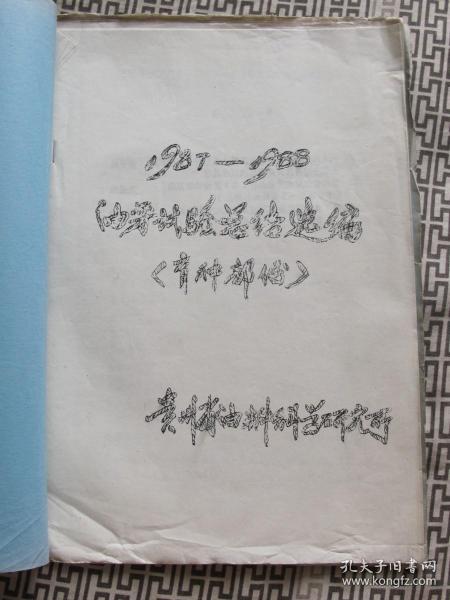 1987—1988
油菜试验总结选编
〈育种部份〉
贵州省油料科学研究所
孔夫子旧书网
www.kongfz.com